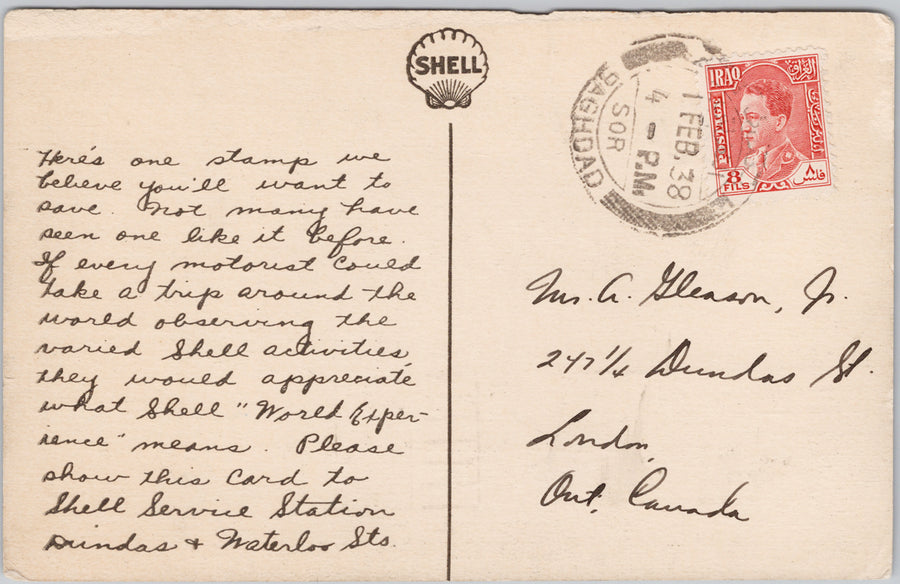 SHELL
Here's one stamp we
believe you'll want to
save. Not many have
seen one like it before.
If every motorist could
take a trip around the
world observing the
varied Shell activities,
they would appreciate
what Shell "World Exper-
ience" means. Please
show this card to
Shell Service Station
Dundas & Waterloo Sts.
BAGHDAD
SOR
1 FEB. 38
4 - P.M.
IRAQ
العراق
POSTAGE
8
FILS
٨
فلس
Mr. A. Gleason, Jr.
247 1/4 Dundas St.
London,
Ont. Canada